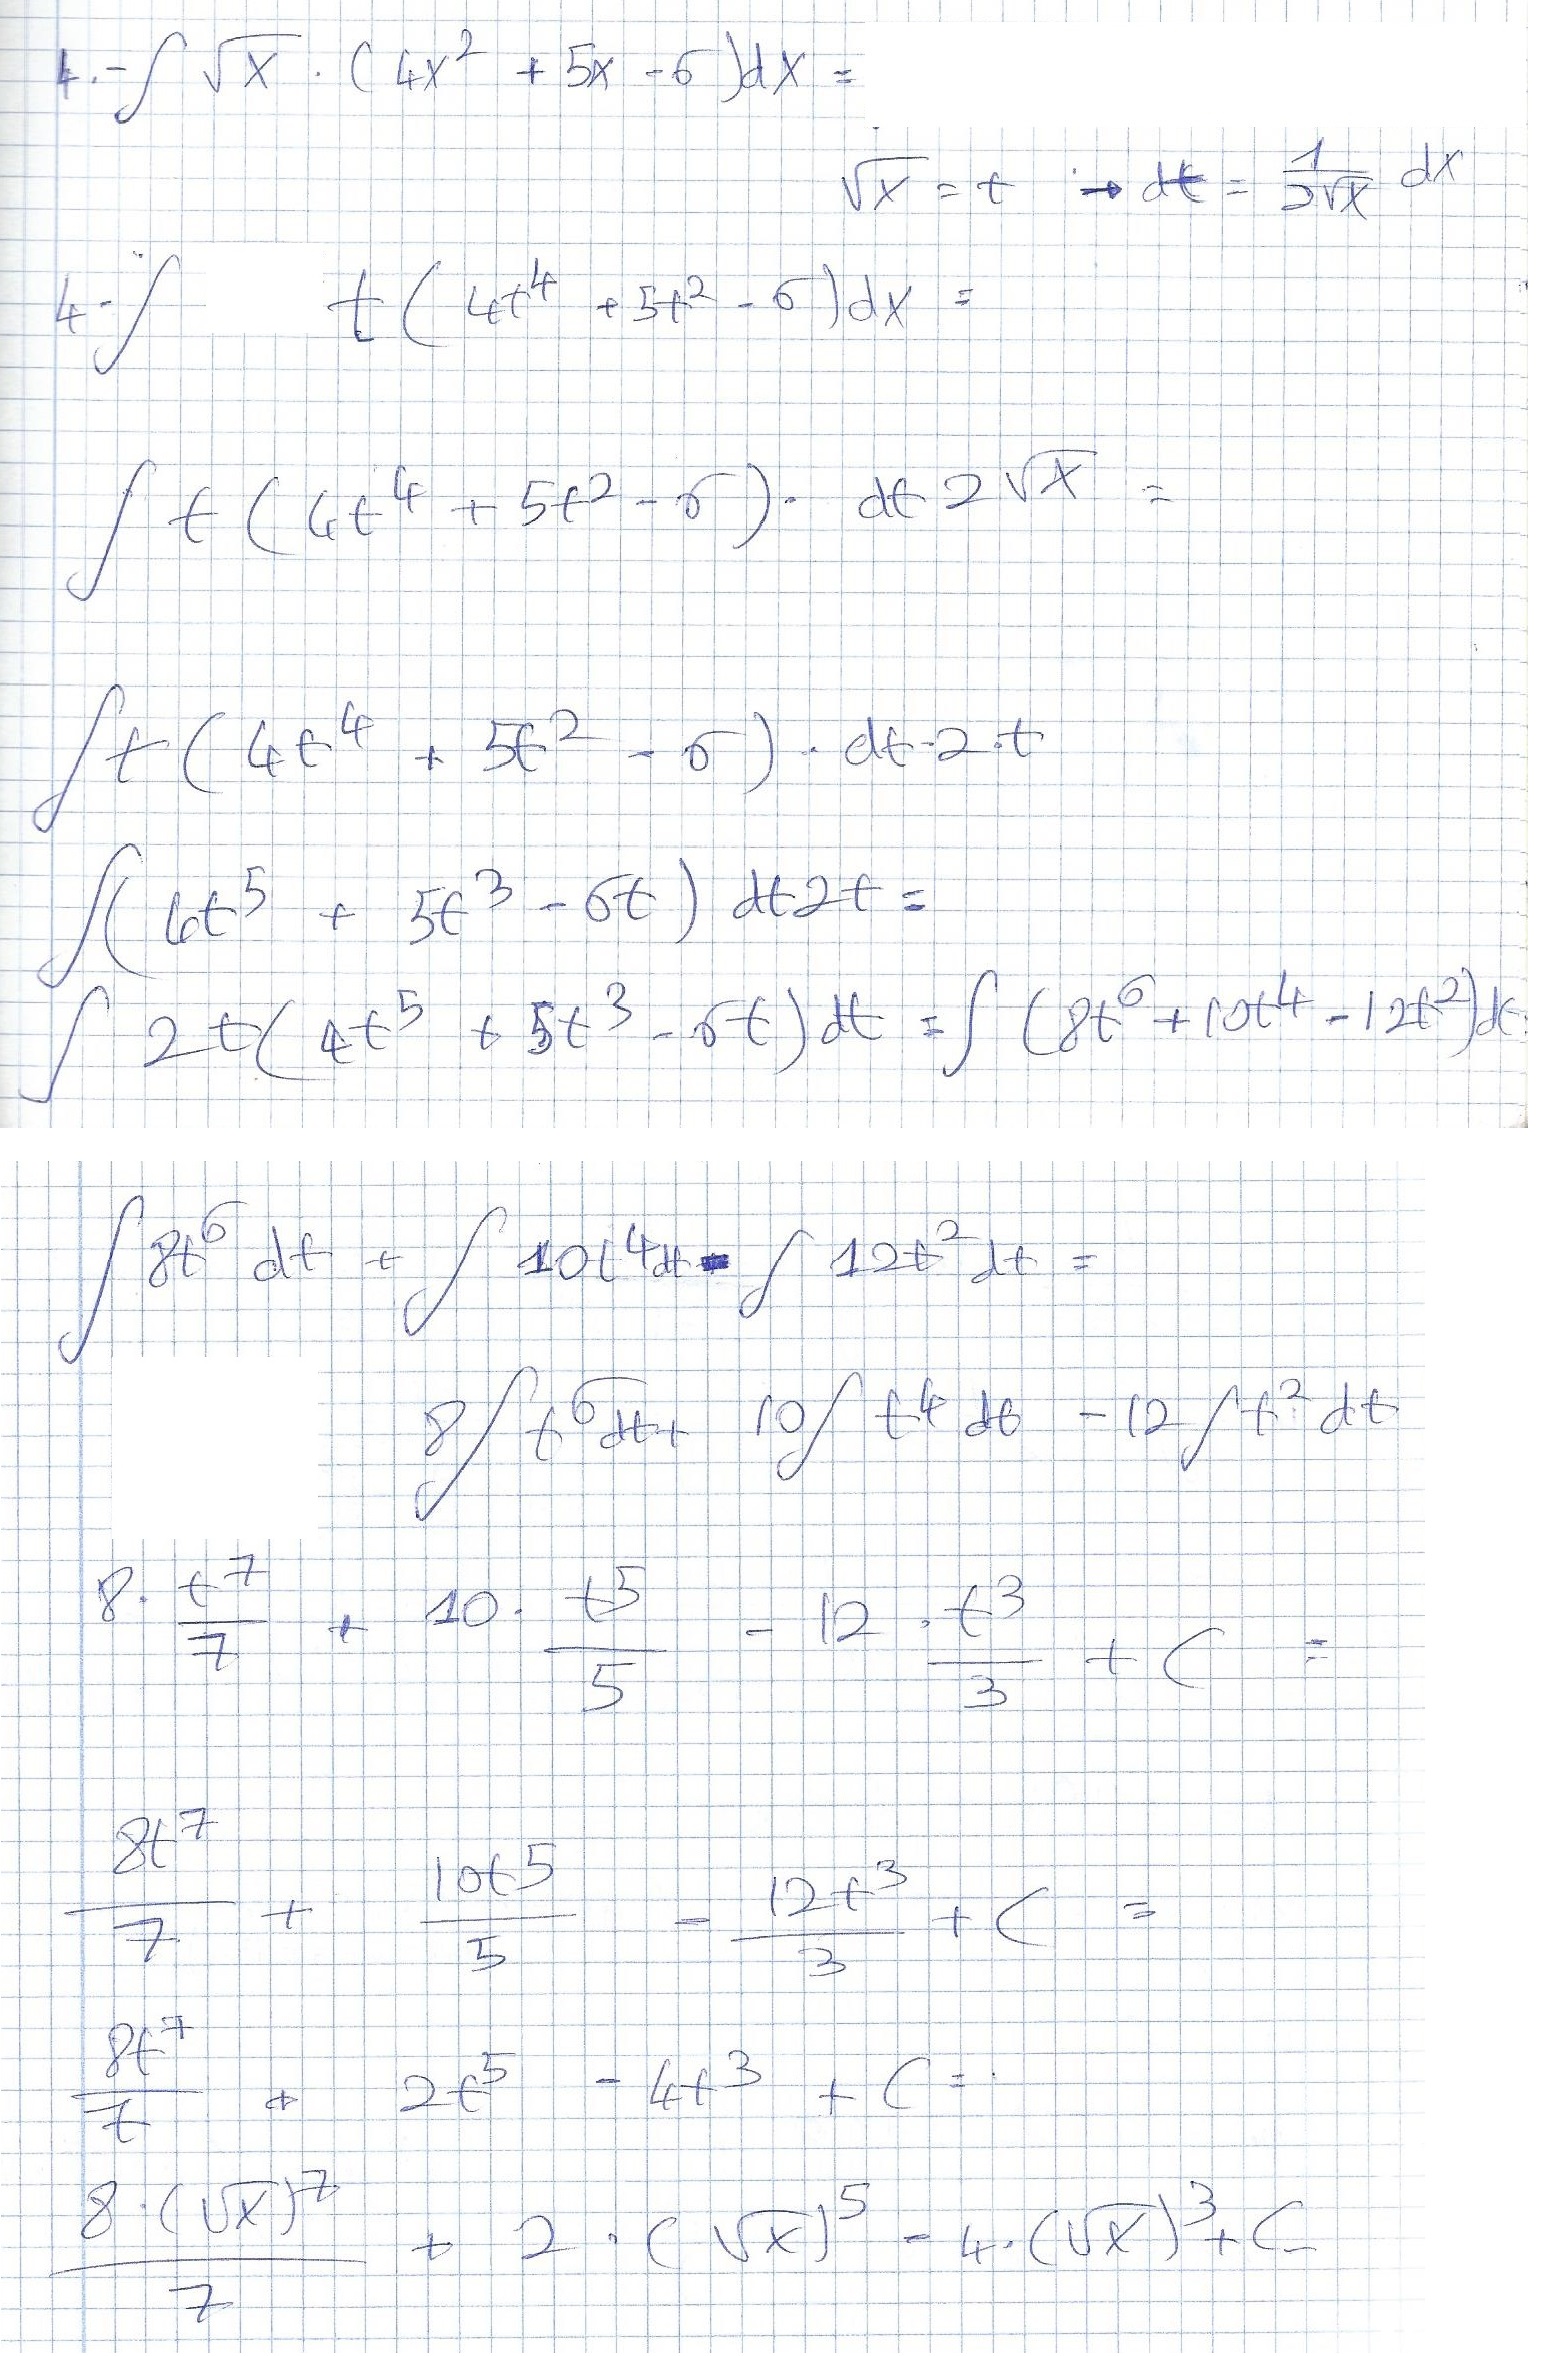 4.- ∫ √x · (4x² + 5x - 6)dx =
√x = t → dt = 1/(2√x) dx
4.- ∫ t(4t⁴ + 5t² - 6)dx =
∫ t(4t⁴ + 5t² - 6) · dt 2√x =
∫ t(4t⁴ + 5t² - 6) · dt · 2 · t
∫(4t⁵ + 5t³ - 6t) dt 2t =
∫ 2t(4t⁵ + 5t³ - 6t)dt = ∫ (8t⁶ + 10t⁴ - 12t²)dt
∫ 8t⁶ dt + ∫ 10t⁴ dt - ∫ 12t² dt =
8∫ t⁶ dt + 10∫ t⁴ dt - 12∫ t² dt
8 · t⁷/7 + 10 · t⁵/5 - 12 · t³/3 + C =
8t⁷/7 + 10t⁵/5 - 12t³/3 + C =
8t⁷/7 + 2t⁵ - 4t³ + C =
8·(√x)⁷/7 + 2·(√x)⁵ - 4·(√x)³ + C